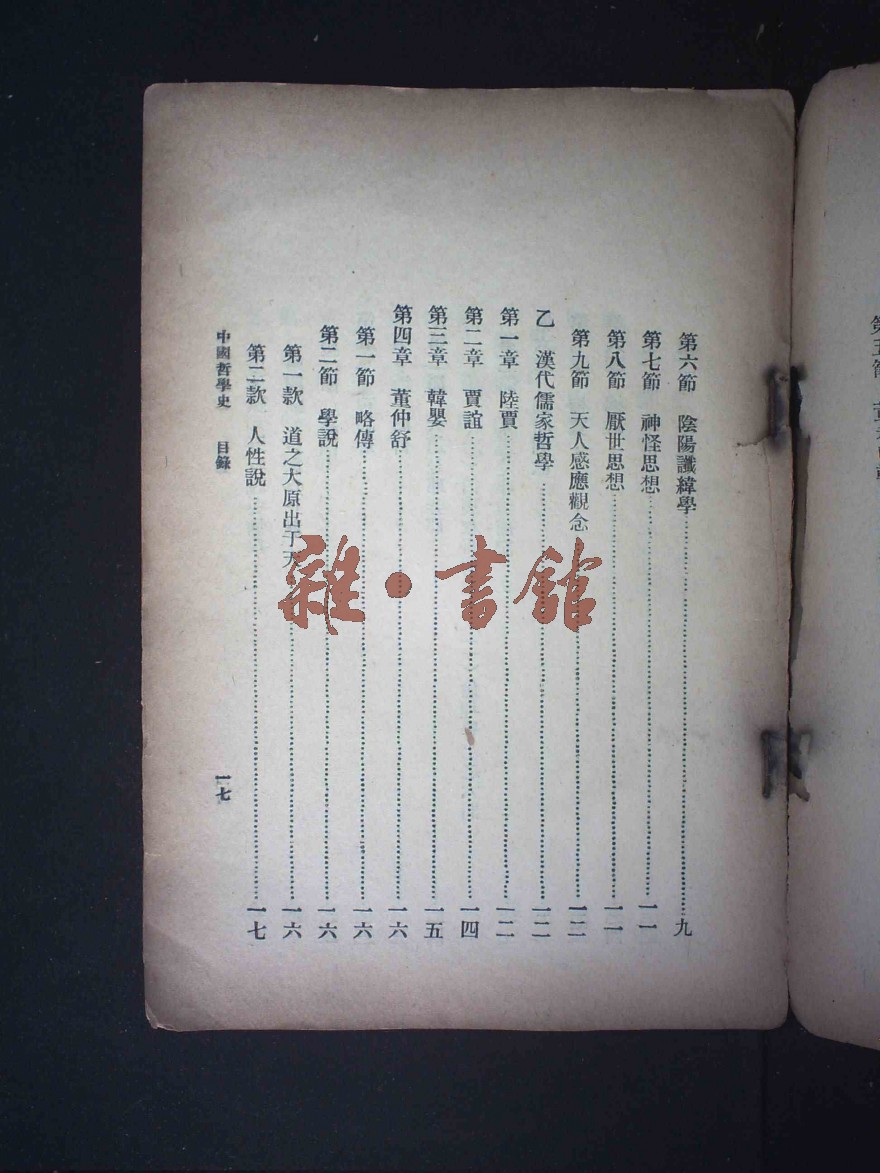 第六節 陰陽讖緯學……九
第七節 神怪思想……一一
第八節 厭世思想……一一
第九節 天人感應觀念……一二
乙 漢代儒家哲學……一二
第一章 陸賈……一二
第二章 賈誼……一四
第三章 韓嬰……一五
第四章 董仲舒……一六
第一節 略傳……一六
第二節 學說……一六
第一款 道之大原出于天……一六
第二款 人性說……一七
中國哲學史 目錄 一七
雜·書館